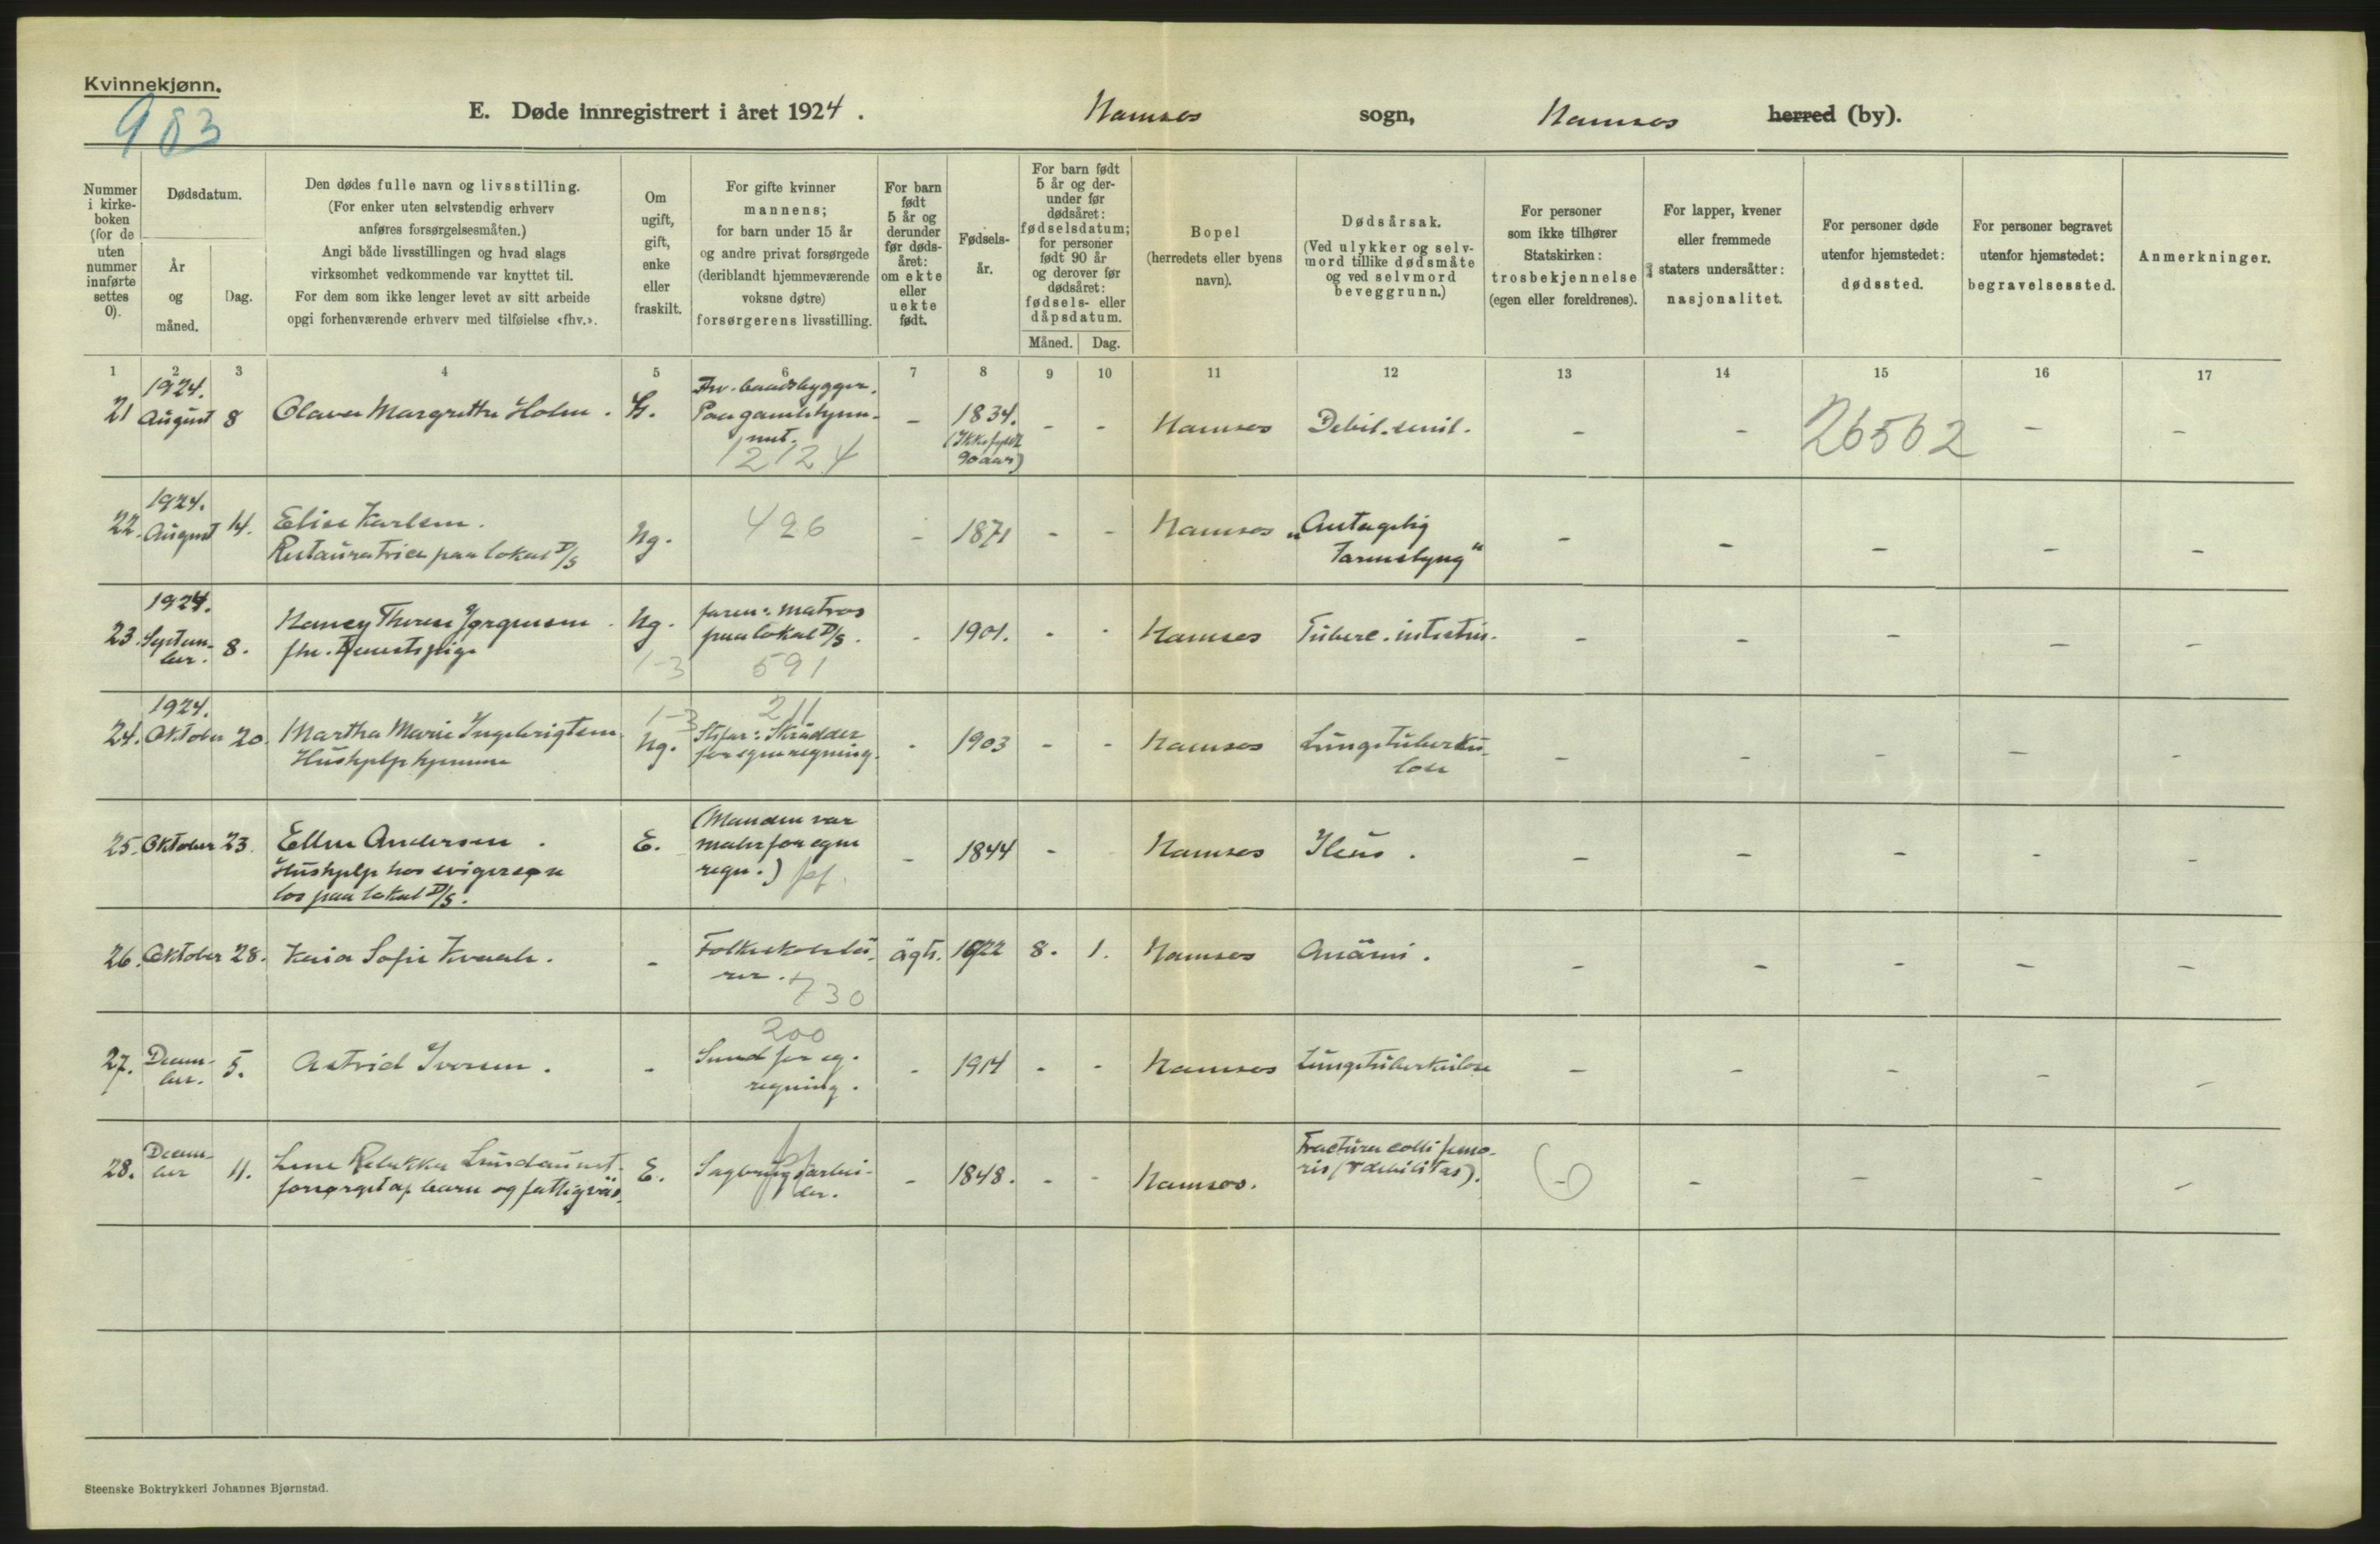 Kvinnekjønn.
983
E. Døde innregistrert i året 1924.
Namsos sogn, Namsos herred (by).
Nummer i kirke-boken (for de uten nummer innførte settes 0).
Dødsdatum.
År og måned.
Dag.
Den dødes fulle navn og livsstilling.
(For enker uten selvstendig erhverv
anføres forsørgelsesmåten.)
Angi både livsstillingen og hvad slags
virksomhet vedkommende var knyttet til.
For dem som ikke lenger levet av sitt arbeide
opgi forhenværende erhverv med tilføielse «fhv.».
Om
ugift,
gift,
enke
eller
fraskilt.
For gifte kvinner
mannens;
for barn under 15 år
og andre privat forsørgede
(deriblandt hjemmeværende
voksne døtre)
forsørgerens livsstilling.
For barn
født
5 år og
derunder
før døds-
året:
om ekte
eller
uekte
født.
Fødsels-
år.
For barn født
5 år og der-
under før
dødsåret:
fødselsdatum;
for personer
født 90 år
og derover før
dødsåret:
fødsels- eller
dåpsdatum.
Måned. Dag.
Bopel
(herredets eller byens
navn).
Dødsårsak.
(Ved ulykker og selv-
mord tillike dødsmåte
og ved selvmord
beveggrunn.)
For personer
som ikke tilhører
Statskirken:
trosbekjennelse
(egen eller foreldrenes).
For lapper, kvener
eller fremmede
staters undersåtter:
nasjonalitet.
For personer døde
utenfor hjemstedet:
dødssted.
For personer begravet
utenfor hjemstedet:
begravelsessted.
Anmerkninger.
1 2 3 4 5 6 7 8 9 10 11 12 13 14 15 16 17
21 1924. August 8 Olava Margrethe Holm. G. Fhv. baadbygger. Paa gamlehjem-met. 12124 - 1834. (Ikke fyldt 90 aar) - - Namsos Debil. senil. - - 26502 - -
22. 1924. August 14. Elise Karlsen. Restauratrice paa lokal D/S Ug. 426 - 1871 - - Namsos „Antagelig Tarmslyng“ - - - - -
23. 1924. Septem-ber. 8. Nancy Therese Jørgensen fhv. tjenestepige Ug. 1-3 faren: matros paa lokal D/S. 591 - 1901. - - Namsos Tuberc. intestin. - - - - -
24. 1924. Oktober 20. Martha Marie Ingebrigtsen. Hushjelp hjemme 1-3 Ug. 211 Stfar: Skrædder for egen regning. - 1903 - - Namsos Lungetuberku-lose - - - - -
25. Oktober 23. Ellen Andersen. Hushjelp hos svigersøn los paa lokal D/S. E. (Manden var maler for egen regn.) - 1844 - Namsos Ileus. - - - - -
26. Oktober 28. Kaia Sofie Kvaale. - Folkeskolelæ-rer. 730 ägte. 1922 8. 1. Namsos Anämi. - - - - -
27. Decem-ber. 5. Astrid Iversen. - 200 Smed for eg. regning. - 1914 - - Namsos Lungetuberkulose - - - - -
28. Decem-ber 11. Lene Rebekka Lundaunet. forsørget af barn og fattigväs. E. Sagbrugsarbei-der. - 1848. - - Namsos. Fractura colli femo-ris (debilitas). 6 - - - - -
Steenske Boktrykkeri Johannes Bjørnstad.